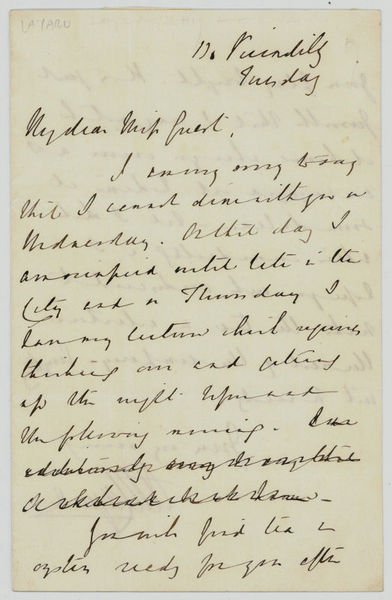 LAYARD
130 Piccadilly
Tuesday
My dear Miss Guest,
I am very sorry to say
that I cannot dine with you on
Wednesday. On that day I
am occupied until late in the
City and on Thursday I
have my lecture which requires
thinking over and getting
up the night before and
the following morning.
You will find tea &
oysters ready for you after